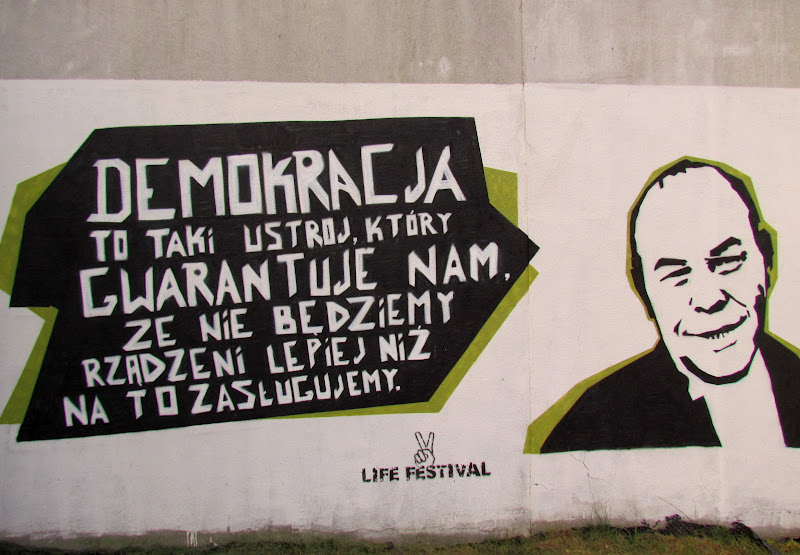 DEMOKRACJA
TO TAKI USTROJ, KTÓRY
GWARANTUJE NAM,
ZE NIE BĘDZIEMY
RZĄDZENI LEPIEJ NIŻ
NA TO ZASŁUGUJEMY.
LIFE FESTIVAL